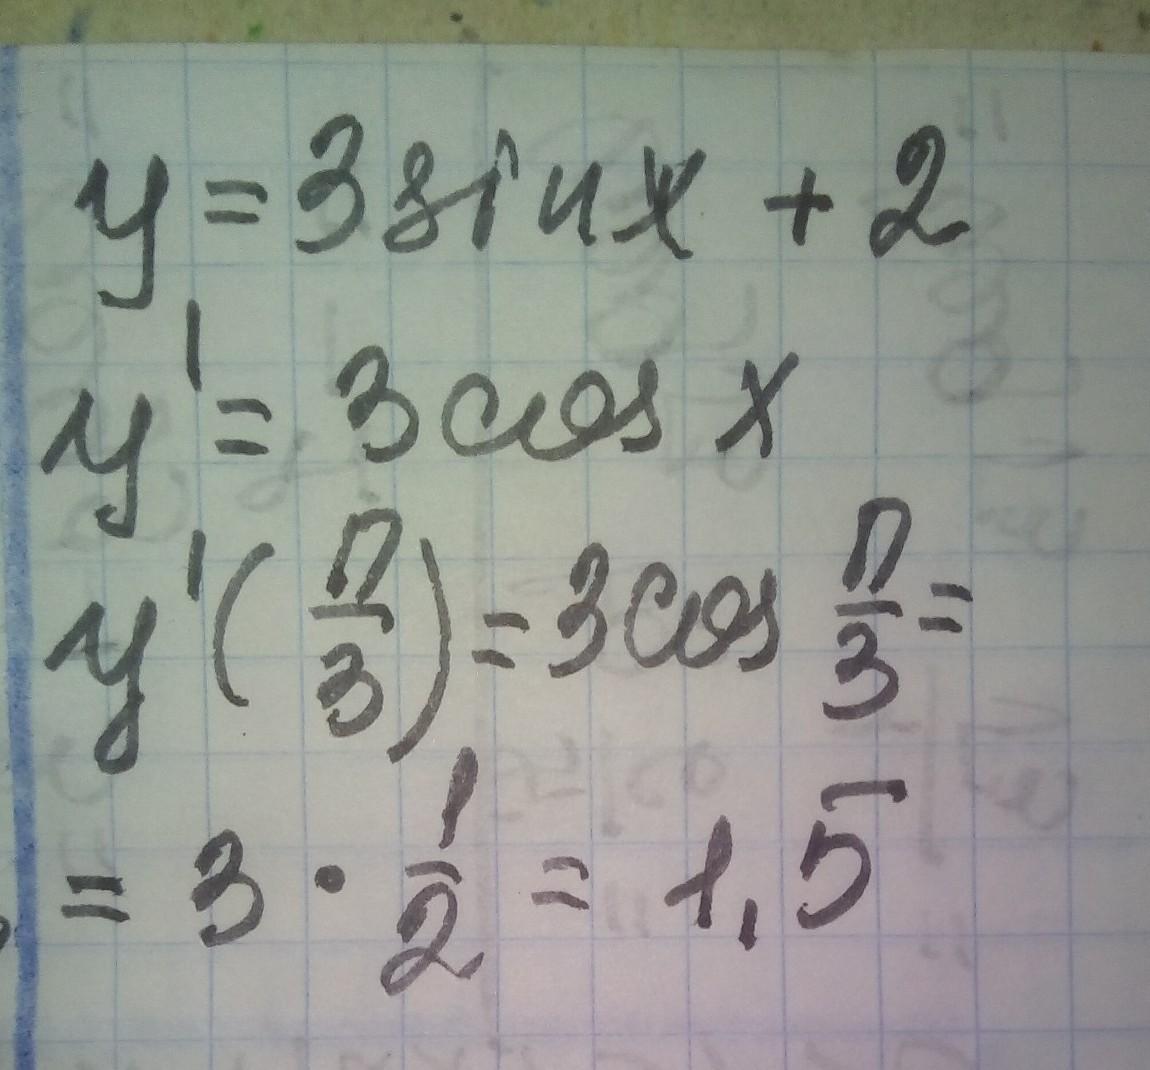 y = 3 sin x + 2
y' = 3 cos x
y'(π/3) = 3 cos π/3 =
= 3 · 1/2 = 1,5